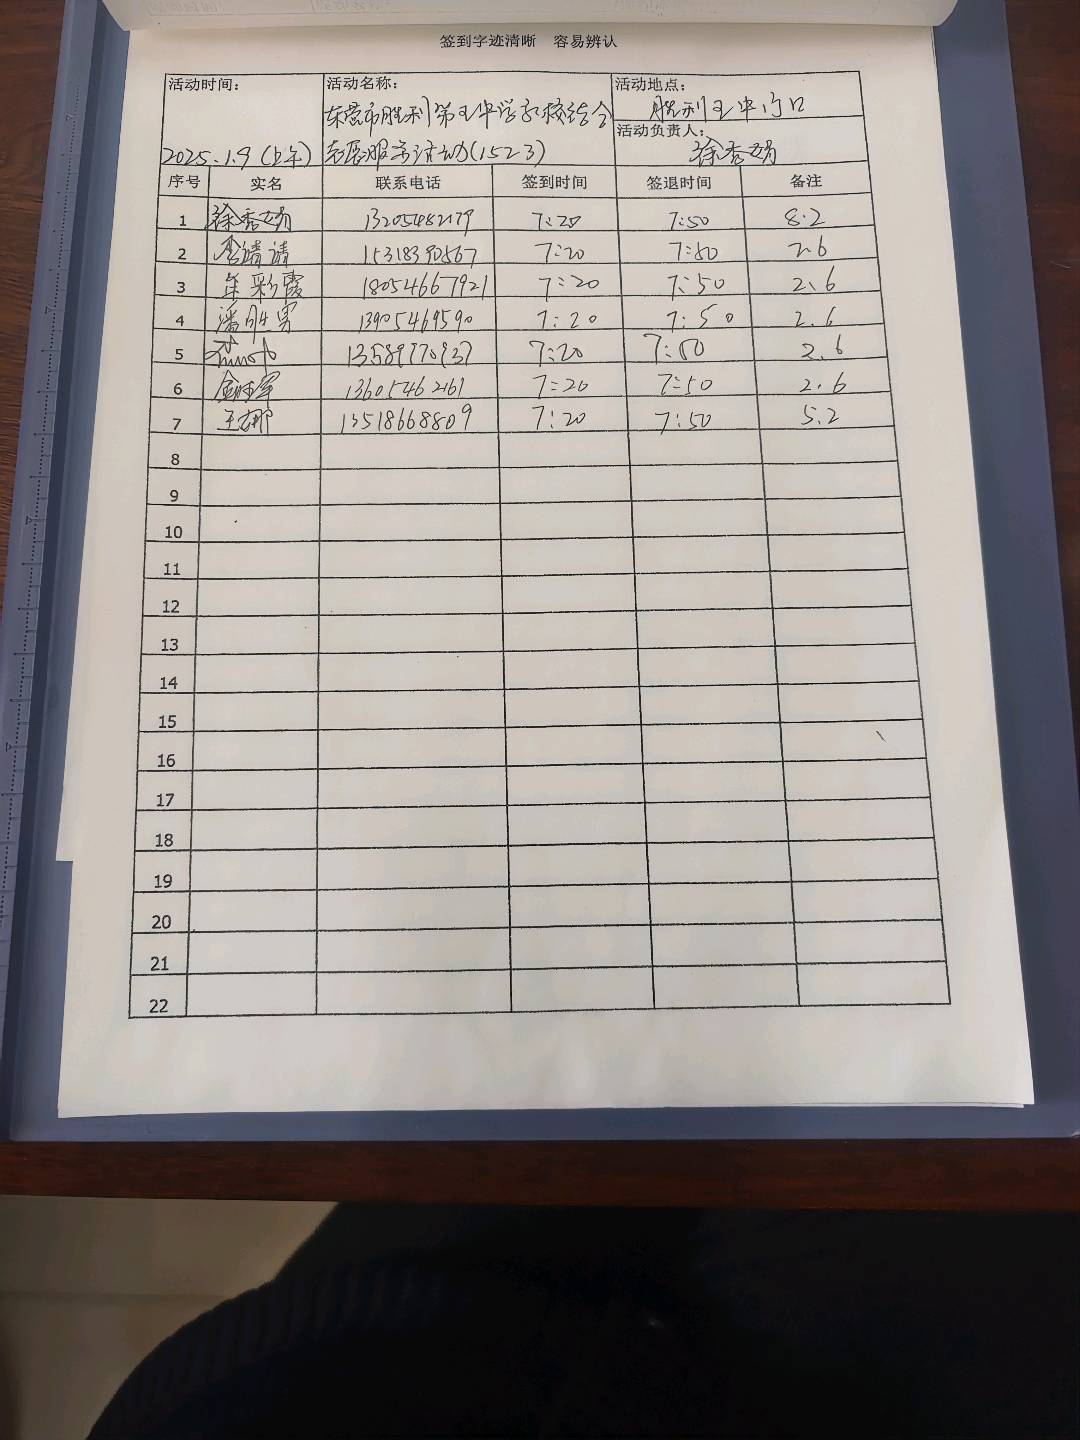 签到字迹清晰 容易辨认
活动时间： 活动名称： 活动地点：
东营市胜利第五中学 胜利五中门口
活动负责人：
2025.1.9 (上午) 志愿服务活动(1523) 徐秀娟
序号 实名 联系电话 签到时间 签退时间 备注
1 徐秀娟 13205482179 7:20 7:50 8.2
2 15318390567 7:20 7:50 2.6
3 彩霞 18054667921 7:20 7:50 2.6
4 潘胜男 13905469590 7:20 7:50 2.6
5 13589970937 7:20 7:50 2.6
6 13605462161 7:20 7:50 2.6
7 王娜 13518668809 7:20 7:50 5.2
8
9
10
11
12
13
14
15
16
17
18
19
20
21
22